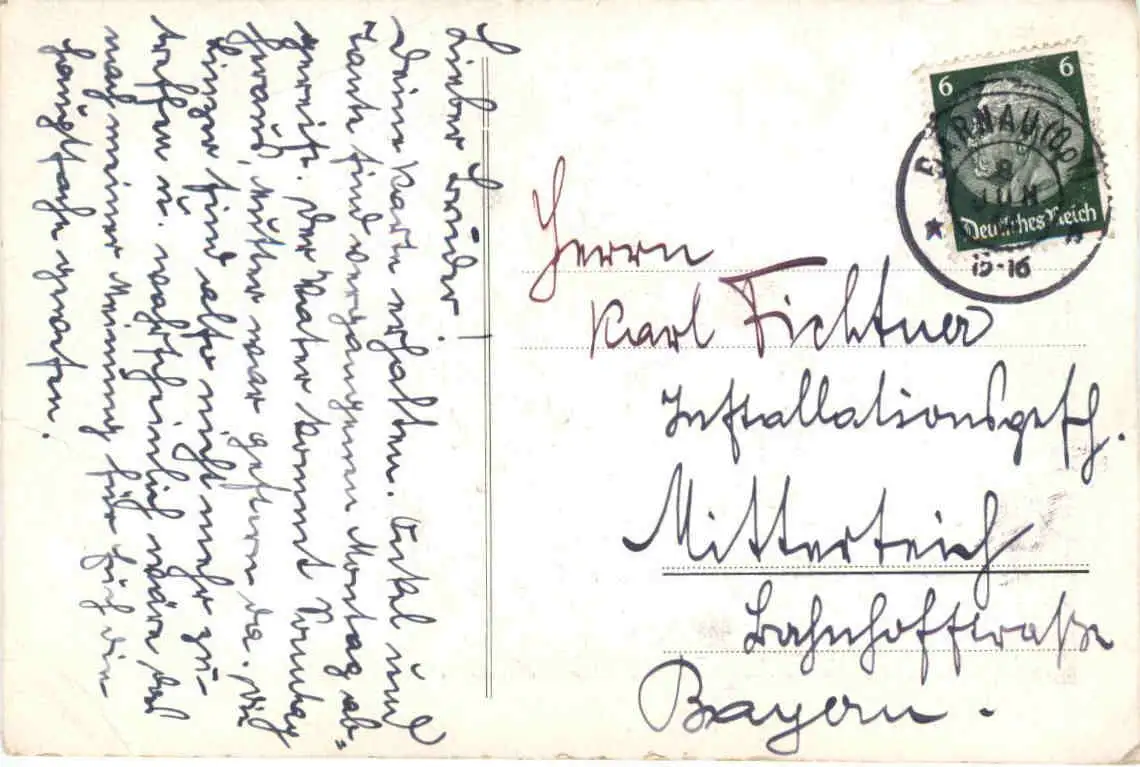 Lieber Bruder!
Deine Karte erhalten. Onkel und
Tante sind vergangenen Montag ab=
gereist. Der Vater kommt Sonntag
heraus, Mutter war gestern da. Die
sind also nicht mehr zu-
treffen u. wahrscheinlich wäre das
nach meiner Meinung für Euch die
Hauptsache gewesen.
6 6
Deutsches Reich
BÄRNAU (OP
8
JUN
15-16
Herrn
Karl Fichtner
Installationsgesch.
Mitterteich
Bahnhofstraße
Bayern.